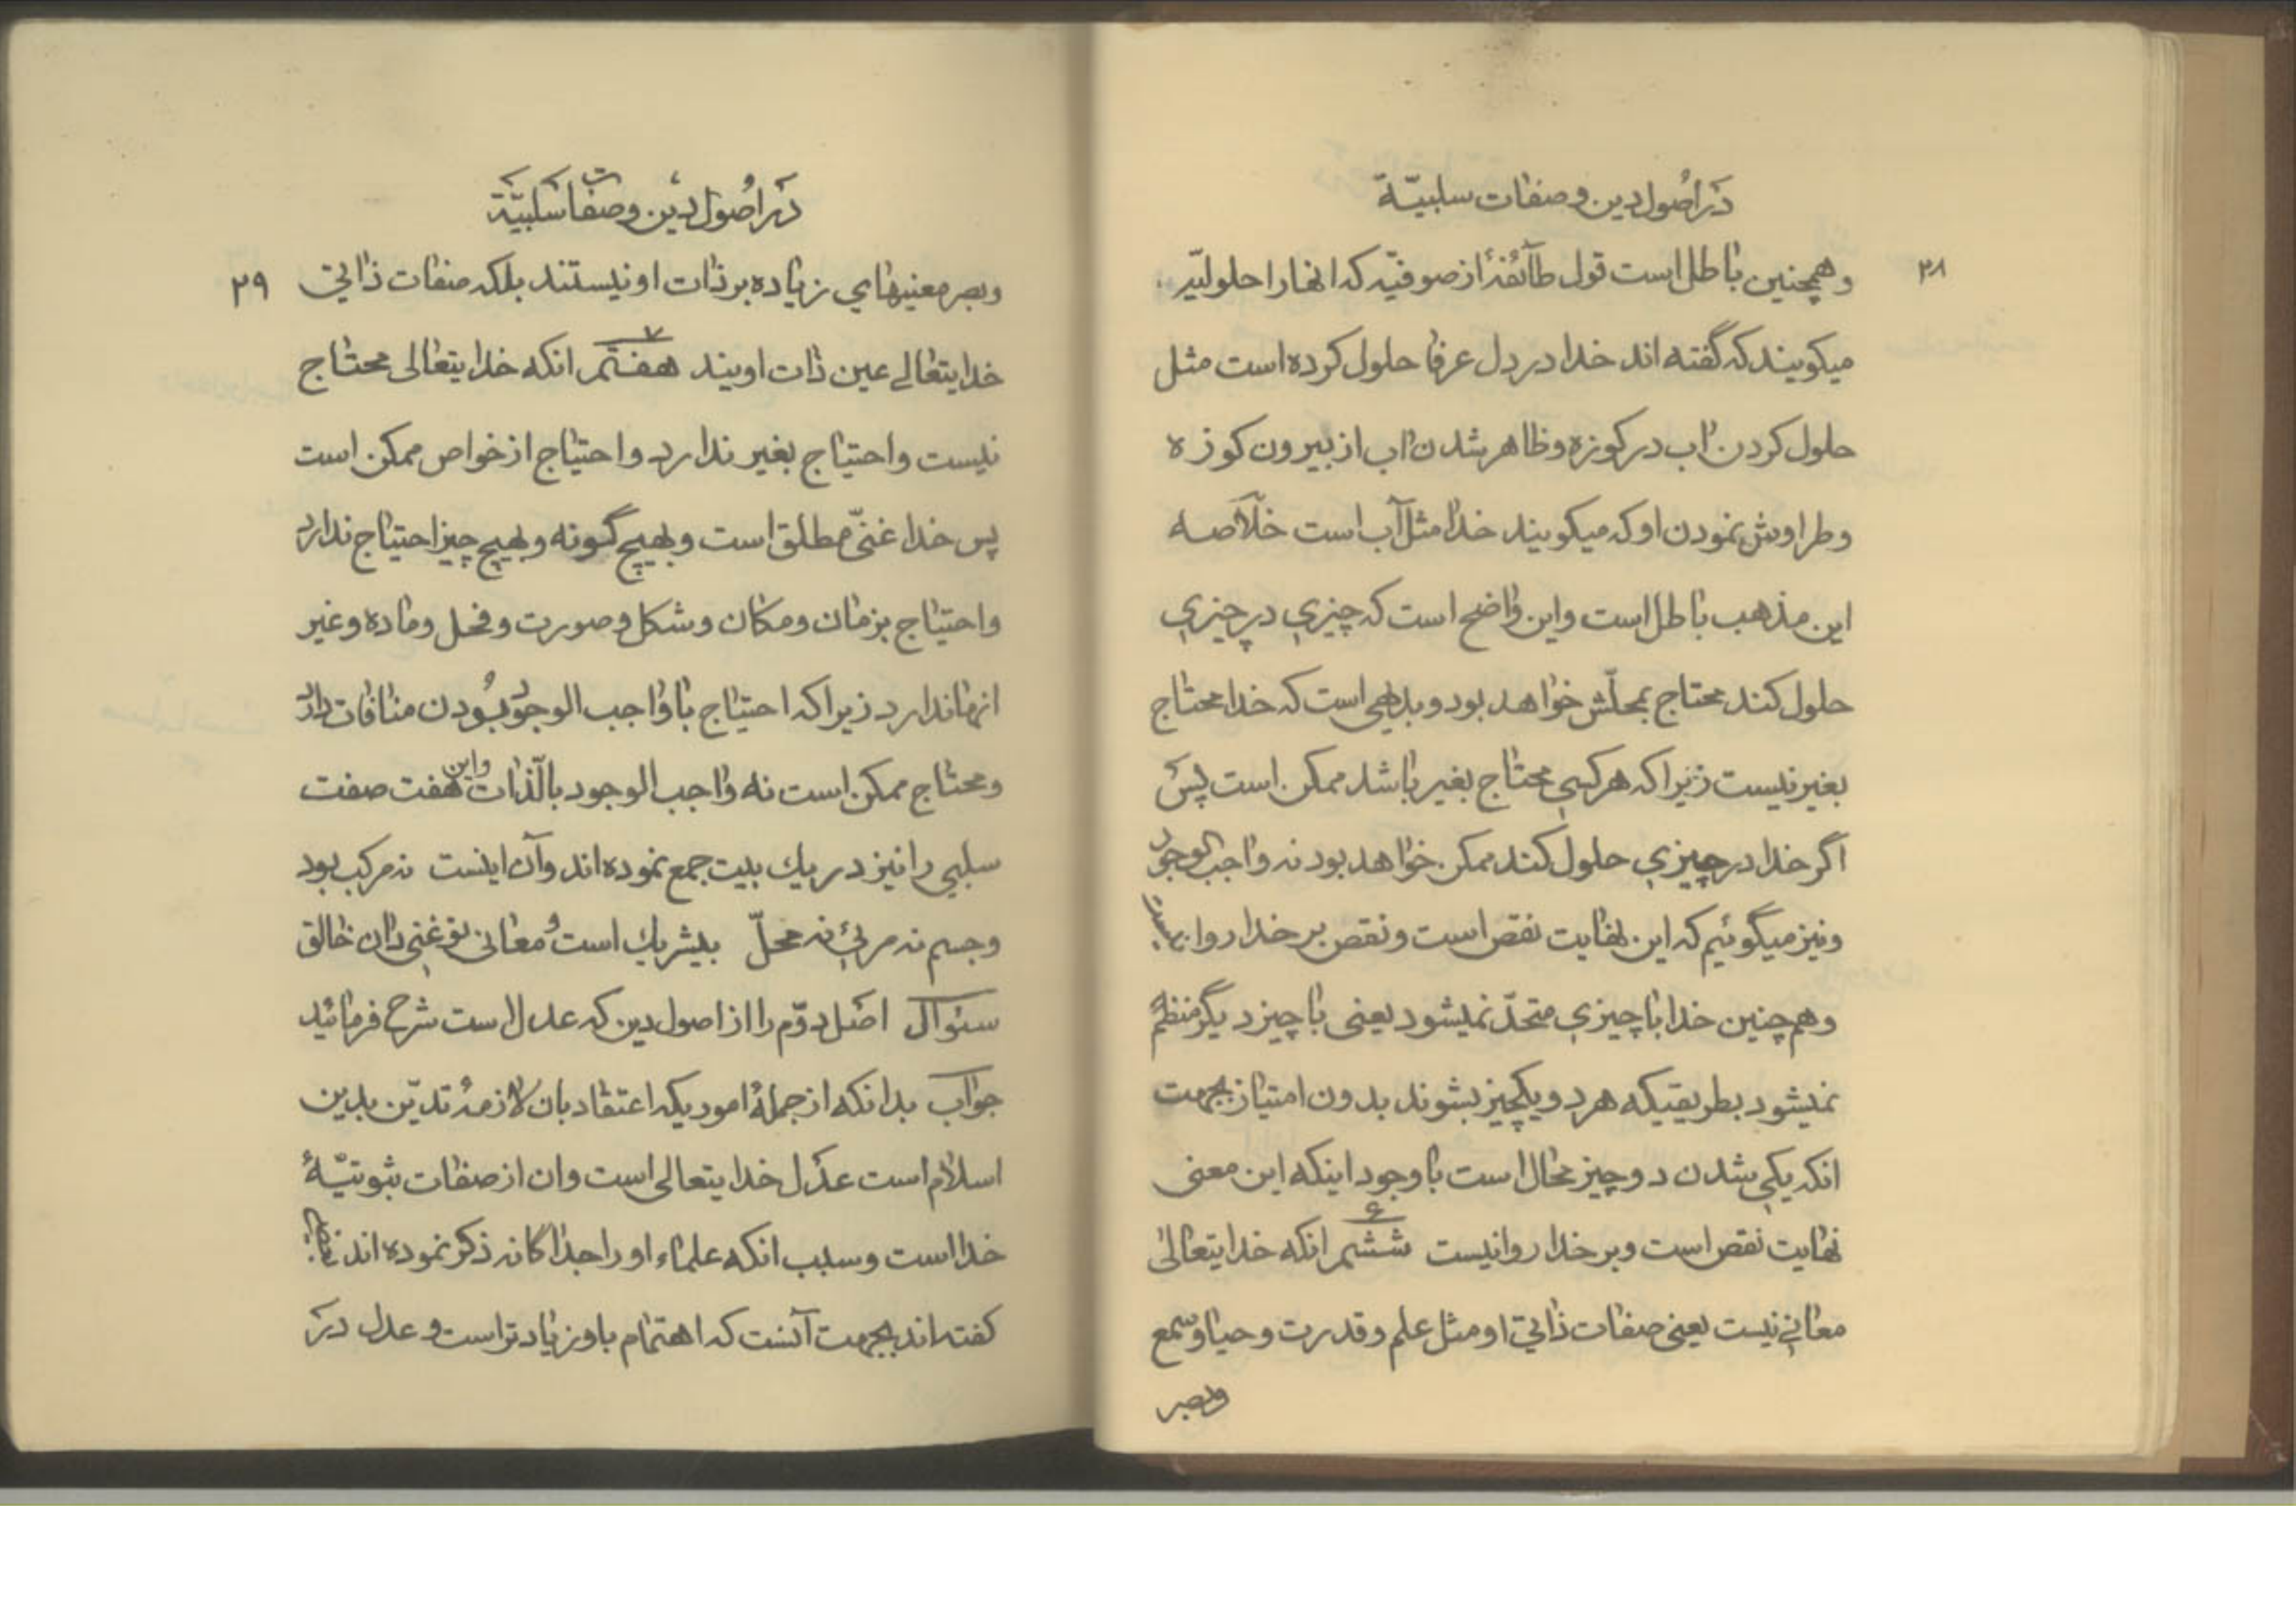 در اصول دین و صفات سلبیّة
۲۸
وهمچنین باطل است قول طآئفهٔ از صوفیّه که انها را حلولیّه
میکویند که گفته اند خدا در دل عرفا حلول کرده است مثل
حلول کردن اب در کوزه و ظاهر شدن اب از بیرون کوزه
وطراوش نمودن او که میکویند خدا مثل آب است خلاصه
این مذهب باطل است واین واضح است که چیزي در چیزي
حلول کند محتاج بمحلّش خواهد بود و بدیهی است که خدا محتاج
بغیر نیست زیرا که هر کسی محتاج بغیر باشد ممکن است پس
اگر خدا در چیزي حلول کند ممکن خواهد بود نه واجب الوجود
ونیز میگوئیم که این نهایت نقص است ونقص بر خدا روا نیست
وهم چنین خدا با چیزي متحدّ نمیشود یعنی با چیز دیگر منظم
نمیشود بطریقیکه هر دو یکچیز بشوند بدون امتیاز بجهت
انکه یکی شدن دو چیز محال است با وجود اینکه این معنی
نهایت نقص است وبر خدا روا نیست ششم انکه خدایتعالیٰ
۶
معانی نیست یعنی صفات ذاتی او مثل علم وقدرت وحیاوسمع
وبصر
در اصول دین و صفات سلبیّة
وبصر معنیهاي زیاده بر ذات او نیستند بلکه صفات ذاتي ۲۹
خدایتعالے عین ذات اویند هفتم انکه خدایتعالی محتاج
۷
نیست واحتیاج بغیر ندارد واحتیاج از خواص ممکن است
پس خدا غنیّ مطلق است وبهیچ گونه وبهیچ چیز احتیاج ندارد
واحتیاج بزمان ومکان وشکل وصورت ومحل وماده وغیر
انها ندارد زیرا که احتیاج با واجب الوجود بودن منافات دارد
ومحتاج ممکن است نه واجب الوجود بالّذات واین هفت صفت
سلبی را نیز در یك بیت جمع نموده اند وآن اینست نه مرکب بود
وجسم نه مرئی نه محلّ بیشریك است ومعانی تو غنی دان خالق
سئوال اصل دوّم را از اصول دین که عدل است شرح فرمائید
جواب بدانکه از جملهٔ اموریکه اعتقاد بان لازمهٔ تدیّن بدین
اسلام است عدل خدایتعالی است وان از صفات ثبوتیّهٔ
خدا است وسبب انکه علماء او را جداکانه ذکر نموده اند
کفته اند بجهت آنست که اهتمام باو زیادتر است وعدل در